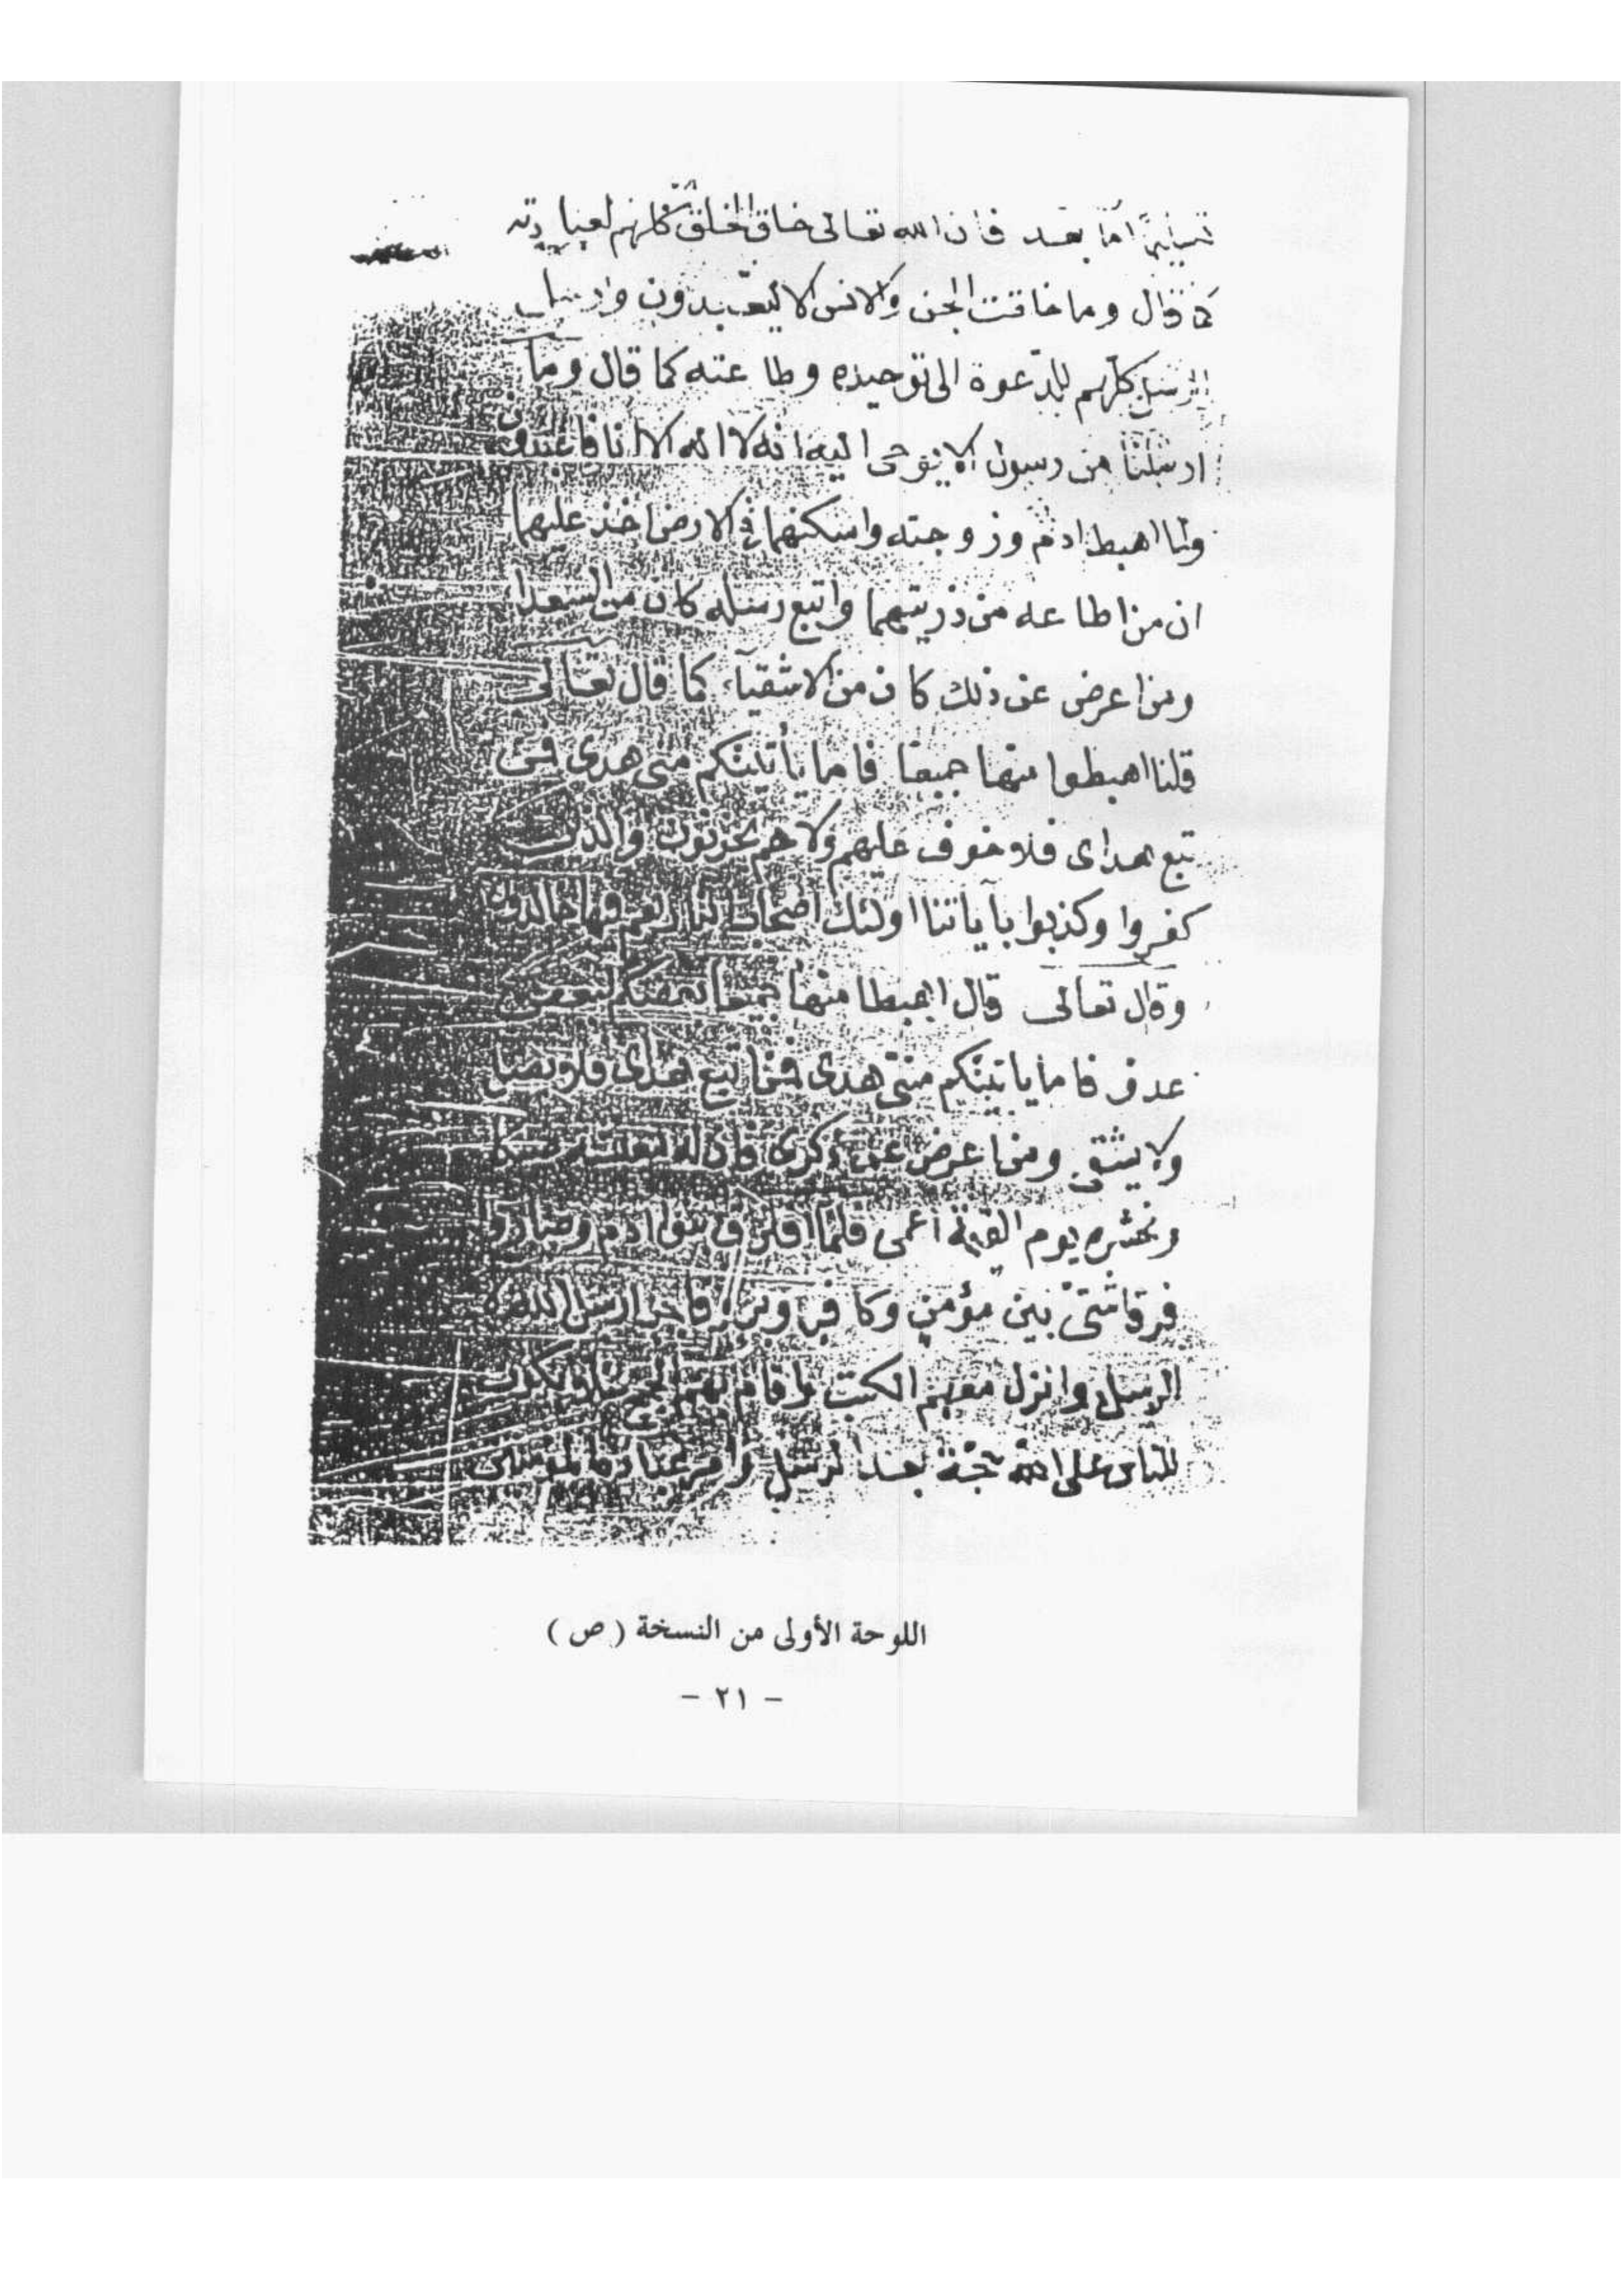 أما بعد فان الله تعالى خلق الخلق كلهم لعبادته
كما قال وما خلقت الجن والانس الا ليعبدون وارسل
الرسل كلهم للدعوة الى توحيده وطاعته كما قال وما
ارسلنا من رسول الا نوحى اليه انه لا اله الا انا فاعبدون
ولما اهبط ادم وزوجته واسكنهما في الارض اخذ عليهما
ان من اطاعه من ذريتهما واتبع رسله كان من السعدا
ومن اعرض عن ذلك كان من الاشقياء كما قال تعالى
قلنا اهبطوا منها جميعا فاما يأتينكم منى هدى فمن
تبع هداى فلا خوف عليهم ولا هم يحزنون والذين
كفروا وكذبوا بآياتنا اولئك اصحاب النار هم فيها خالدون
وقال تعالى قال اهبطا منها جميعا بعضكم لبعض
عدو فاما ياتينكم منى هدى فمن اتبع هداى فلا يضل
ولا يشقى ومن اعرض عن ذكرى فان له معيشة ضنكا
ونحشره يوم القيمة أعمى فلما افترق بنو ادم وصاروا
فرقا شتى بين مؤمن وكافر وبر وفاجر ارسل الله
الرسل وانزل معهم الكتب واقام بهم الحجة لئلا يكون
للناس على الله حجة بعد الرسل وامر عباده المؤمنين
اللوحة الأولى من النسخة ( ص )
- ٢١ -